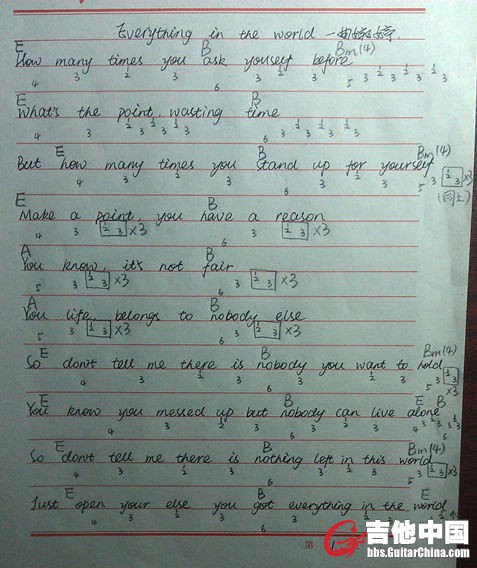 Everything in the world 一曲婷婷.
E B Bm(4)
How many times you ask youself before
4 3 1/2 3 6 3 1/2 3 5 3 1/2 3 1/2 3 1/2 3
E B
What's the point, wasting time
4 3 1/2 3 1/2 3 1/2 3 6 3 1/2 3 1/2 3 1/2 3
E B Bm(4)
But how many times you stand up for yourself
4 3 1/2 3 6 3 1/2 3 5 3 1/2 3 ×3
(同上)
E B
Make a point, you have a reason
4 3 1/2 3 ×3 6 3 1/2 3 ×3
A B
You know, it's not fair
5 3 1/2 3 ×3 6 3 1/2 3 ×3
A B
You life, belongs to nobody else
5 3 1/2 3 ×3 6 3 1/2 3 ×3
E B Bm(4)
So don't tell me there is nobody you want to hold
4 3 1/2 3 6 3 1/2 3 5 3 1/2 3 ×3
E B E B
You know you messed up but nobody can live alone
4 3 1/2 3 6 3 1/2 3 4 3 1/2 3 6 3 1/2 3
E B Bm(4)
So don't tell me there is nothing left in this world
4 3 1/2 3 6 3 1/2 3 5 3 1/2 3 ×3
E B E
Just open your else you got everything in the world
4 3 1/2 3 6 3 1/2 3
第
吉他中国
bbs.GuitarChina.com